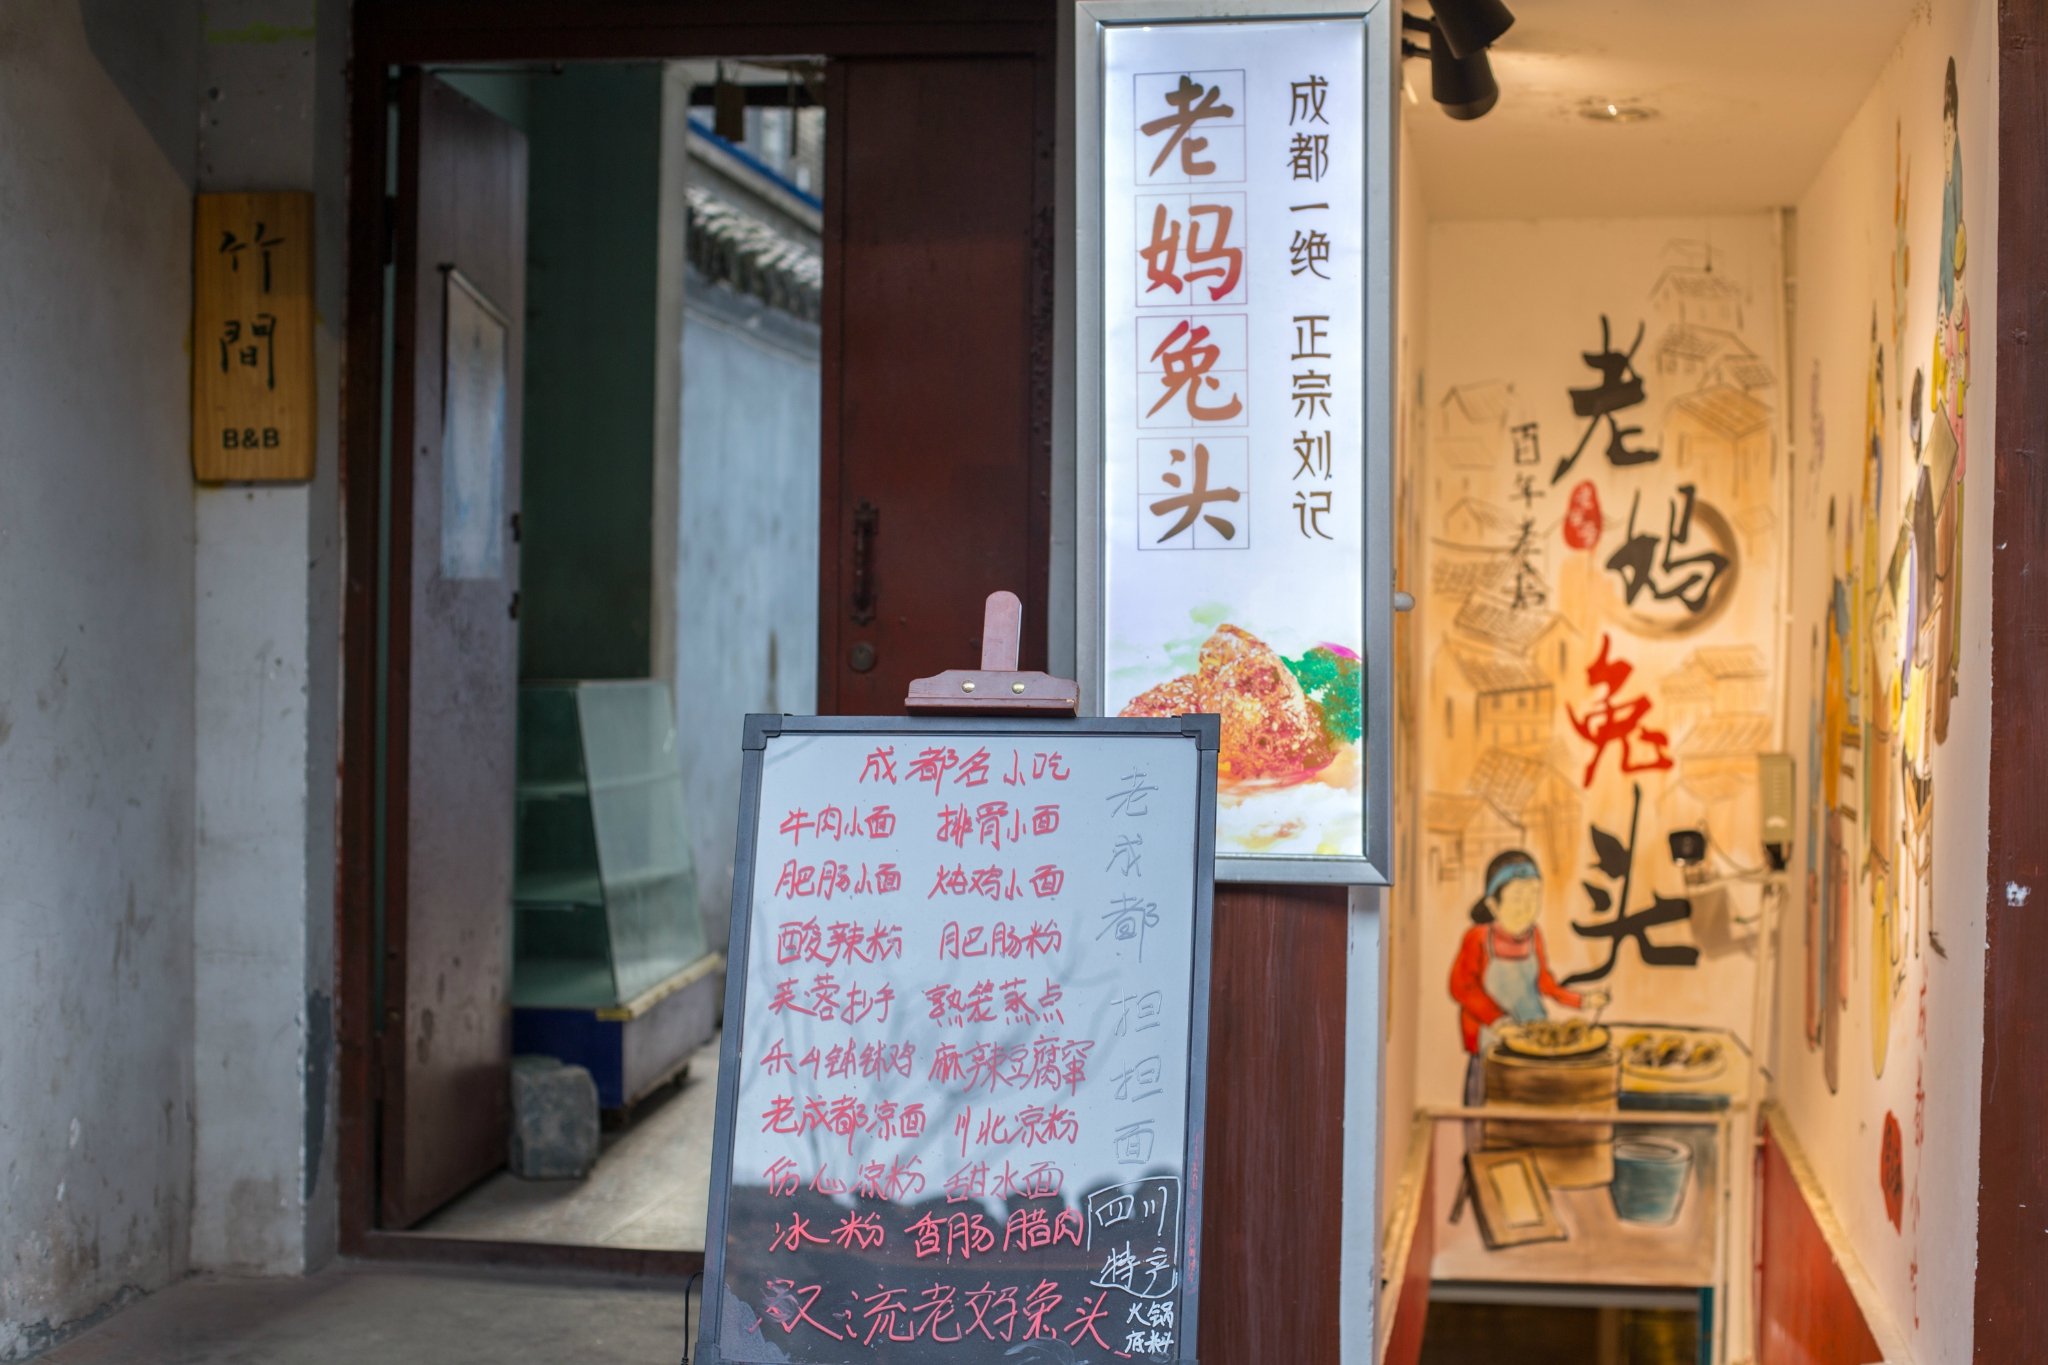 竹間
B&B
成都一绝 正宗刘记
老妈兔头
老妈兔头
百年老
成都名小吃
牛肉小面 排骨小面
肥肠小面 炖鸡小面
酸辣粉 肥肠粉
芙蓉抄手 熟笼蒸点
乐山钵钵鸡 麻辣豆腐窜
老成都凉面 川北凉粉
伤心凉粉 甜水面
冰粉 香肠腊肉
双流老妈兔头
老成都担担面
四川
特产
火锅
底料